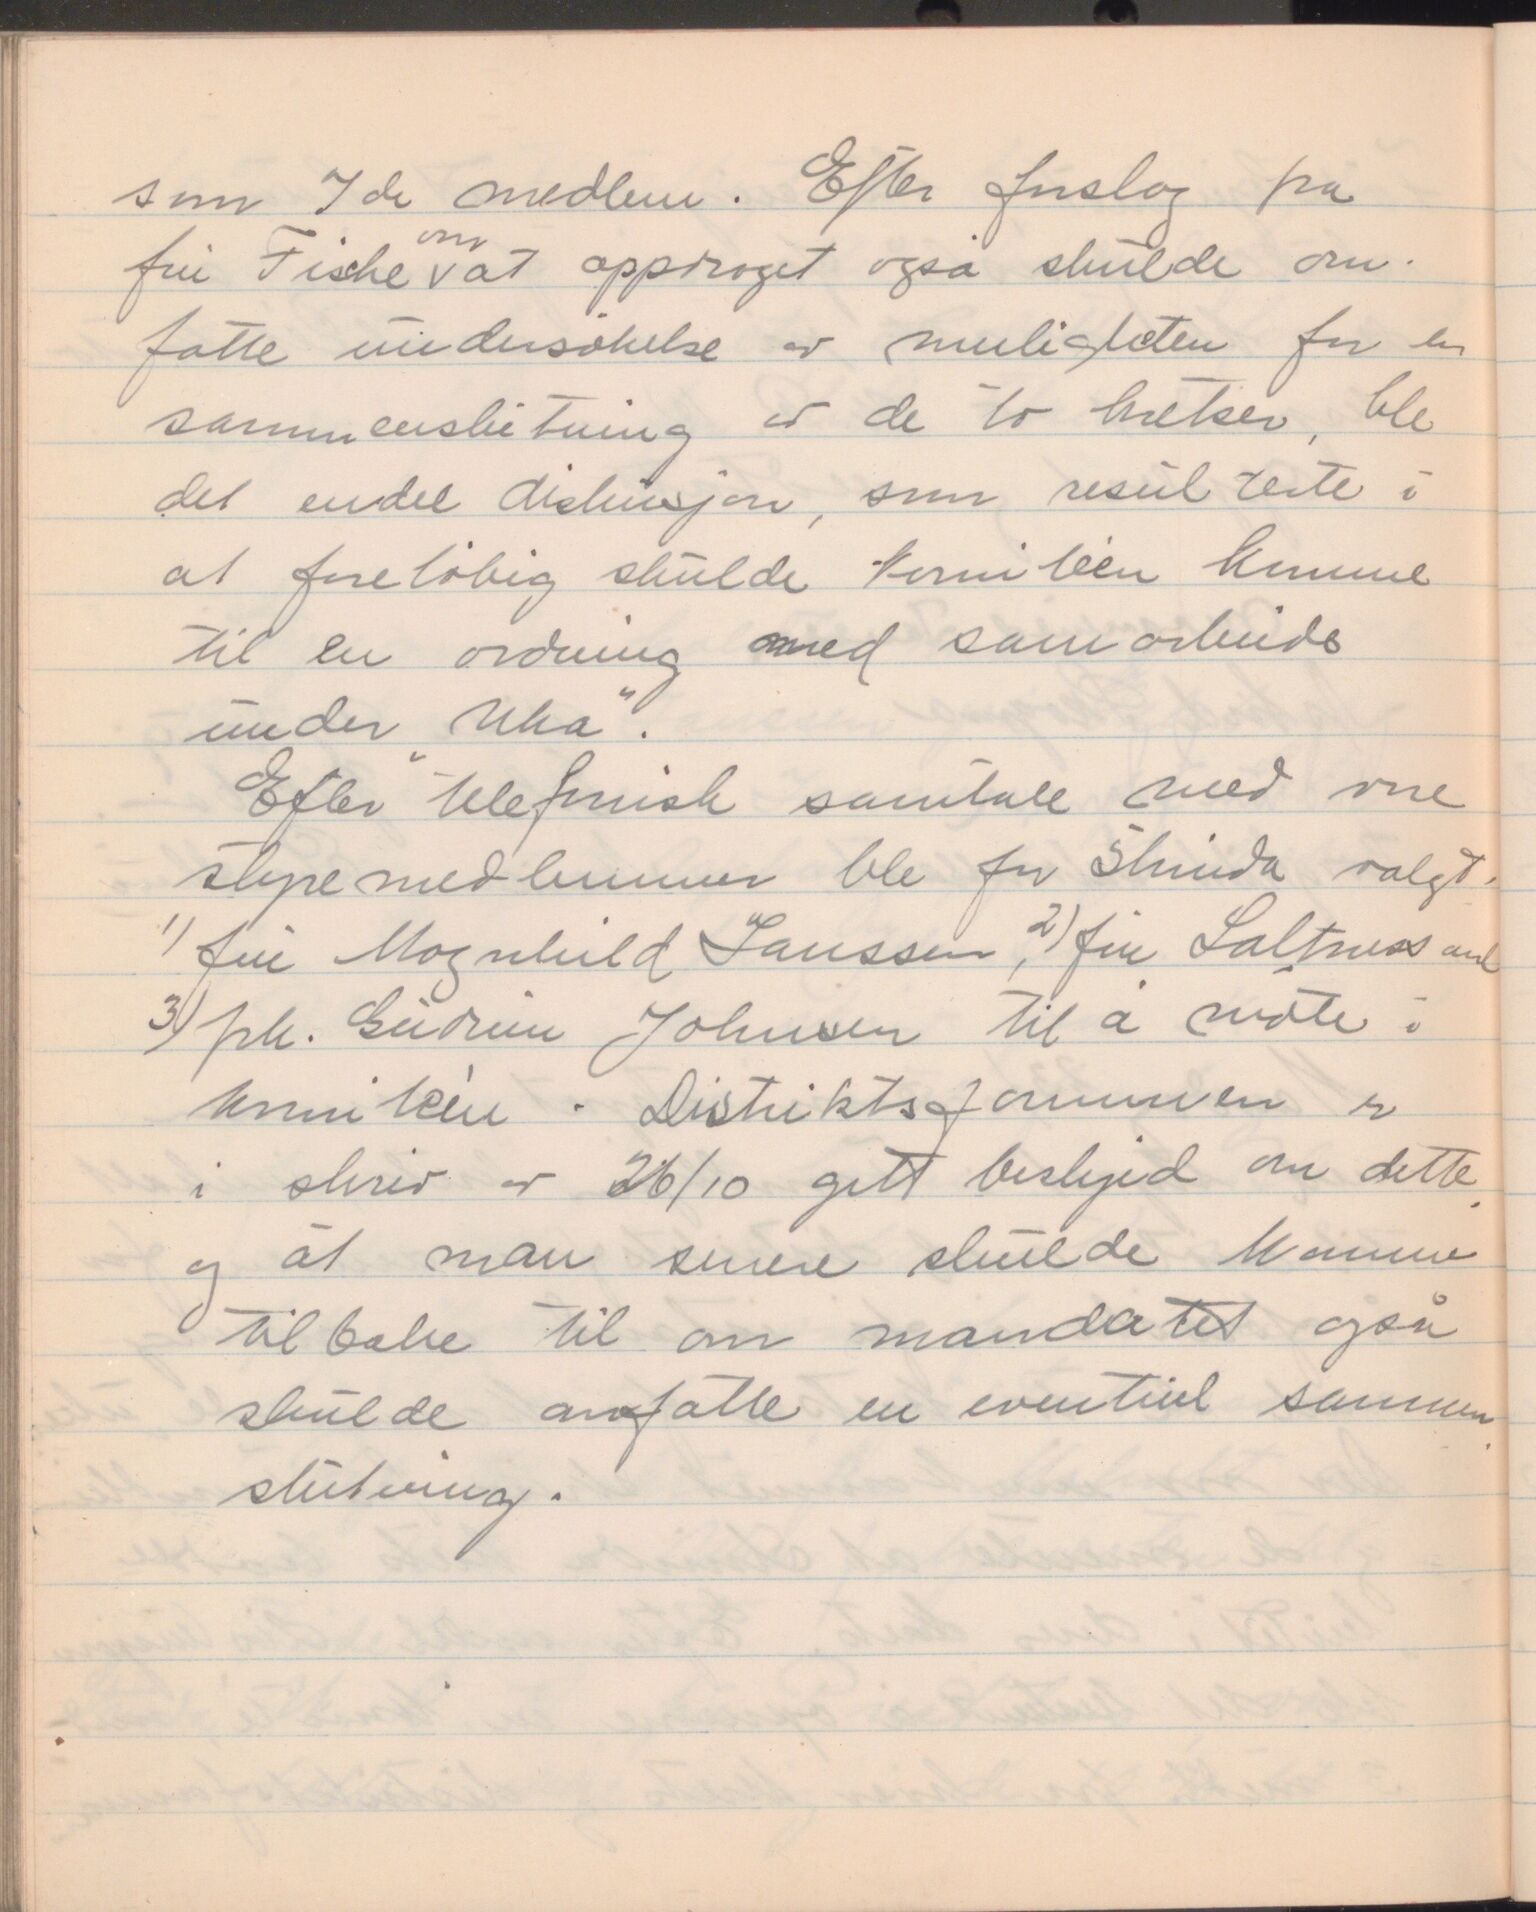 som 7de medlem. Efter forslag fra
frü Fiske om at oppdraget også skülde om-
fatte ündersökelse av muligheten for en
sammenslütning av de to kretser, ble
det endel diskusjon, som resülterte i
at foreløbig skülde komitéen komme
til en ordning med samarbeide
ünder "Uka".
Efter telefonisk samtale med vore
styremedlemmer ble for Strinda valgt.
1) frü Magnhild Janssen, 2) frü Saltness and
3) frk. Güdrün Johnsen til å møte i
komitéen. Distriktsformannen er
i skriv av 26/10 gitt beskjed om dette,
og at man senere skülde komme
tilbake til om mandatet også
skülde omfatte en eventüel sammen-
slütning.